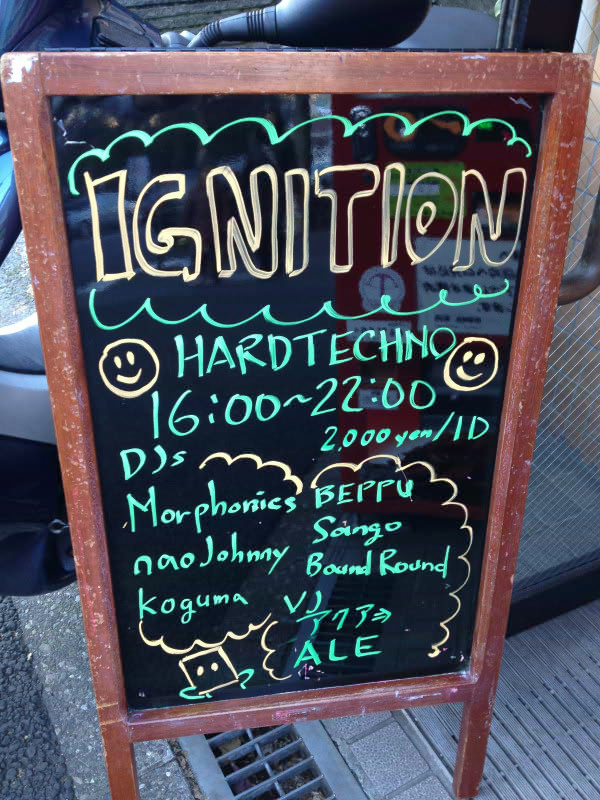 IGNITION
HARDTECHNO
16:00~22:00
2,000 yen/1D
DJs
Morphonics
naoJohnny
koguma
BEPPU
Sango
Bound Round
VJ
ALE